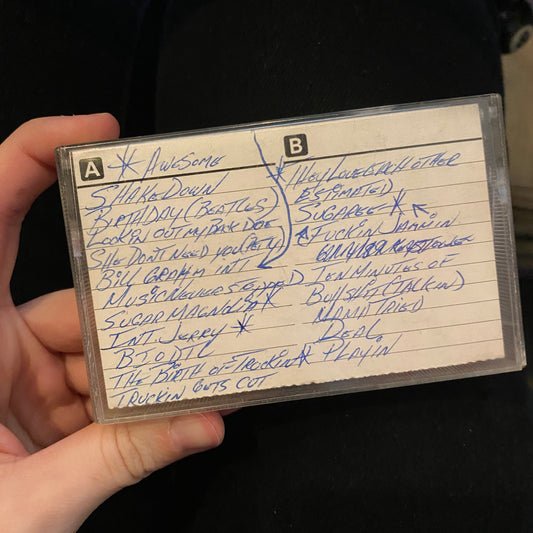 A * AWESOME
SHAKEDOWN
BIRTHDAY (BEATLES)
LOOKIN OUT MY BAK DOE
SHE DON'T NEED YOU (PETY)
BILL GRAHAM INT
MUSIC NEVER STOPPED
SUGAR MAGNOLIA *
INT. JERRY *
BIODTL
THE BIRTH OF TRUCKIN *
TRUCKIN GETS CUT
B
* THEY LOVE EACH OTHER
ESTIMATED
SUGAREE *
FUCKIN JAMMIN
TEN MINUTES OF
BULLSHIT (TALKIN)
MAMA TRIED
DEAL
PLAYIN